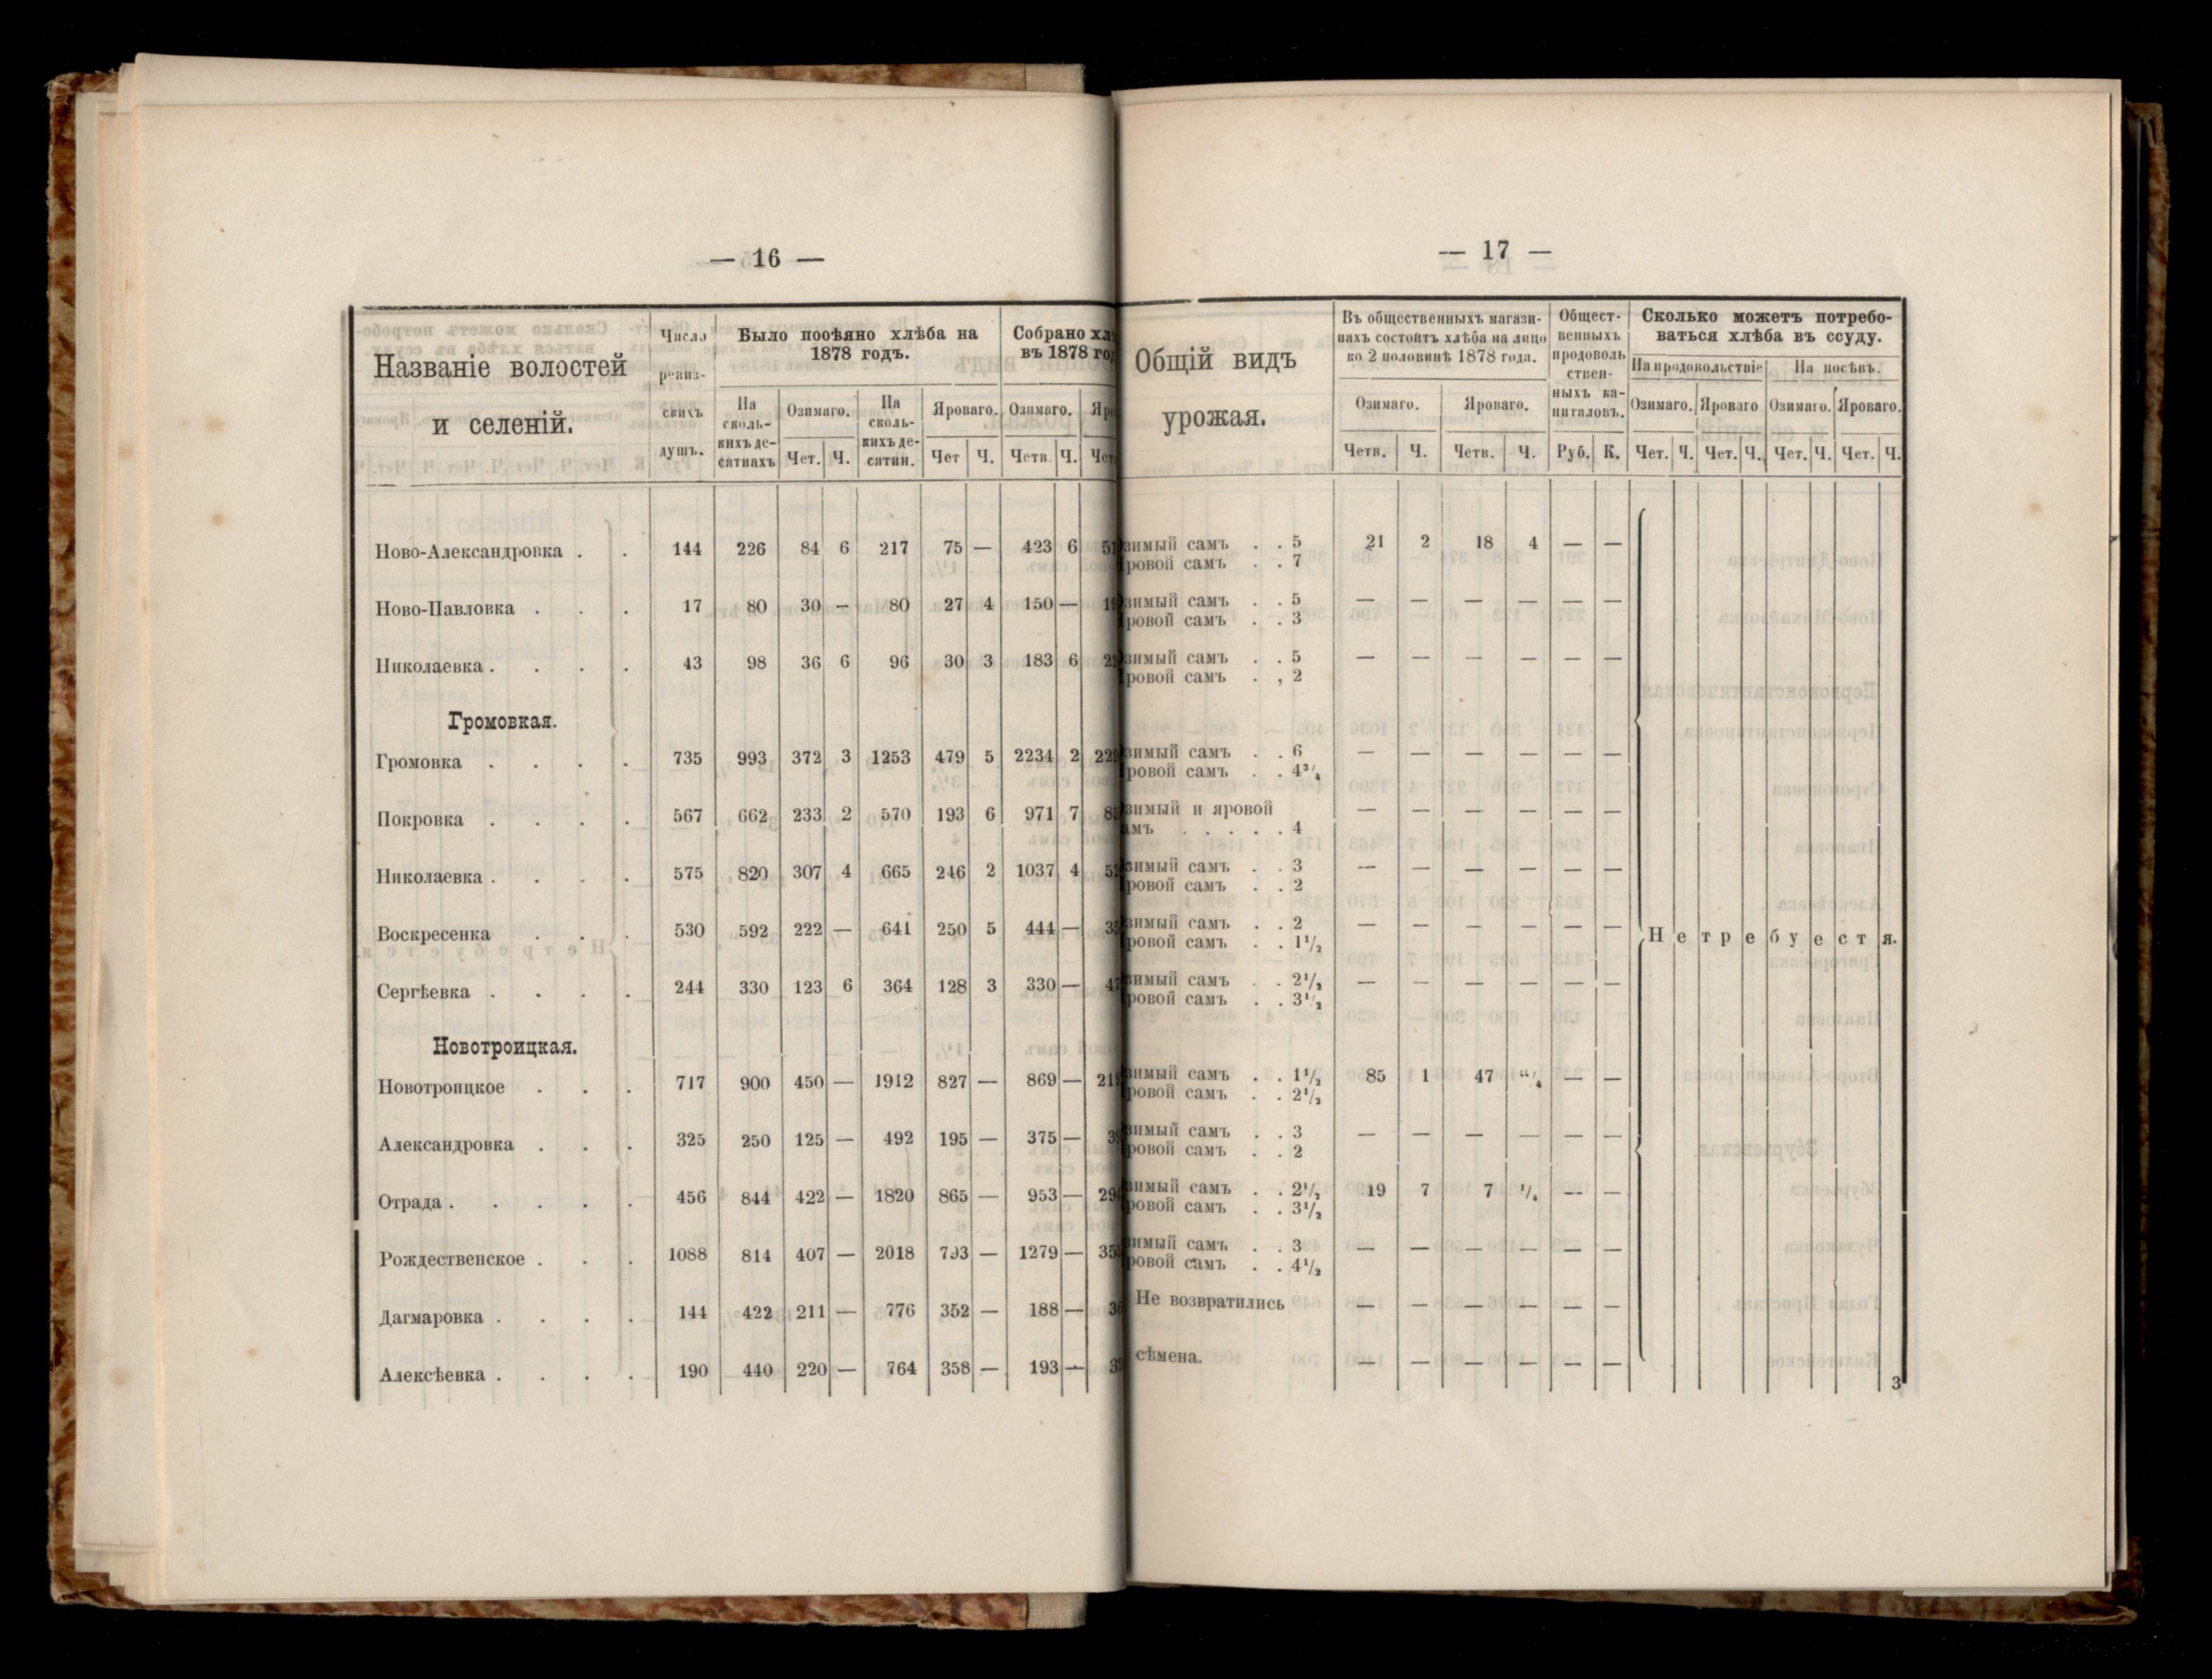 — 16 —
Названіе волостей
и селеній.
Число
ревиз-
скихъ
душъ.
Было посѣяно хлѣба на
1878 годъ.
На
сколь-
кихъ де-
сятнахъ
Озимаго.
Чет. Ч.
На
сколь-
кихъ де-
сятин.
Яроваго.
Чет Ч.
Собрано
въ 1878
Озимаго.
Четв. Ч.
Ново-Александровка . . 144 226 84 6 217 75 — 423 6
Ново-Павловка . . . 17 80 30 — 80 27 4 150 —
Николаевка . . . . 43 98 36 6 96 30 3 183 6
Громовкая.
Громовка . . . . 735 993 372 3 1253 479 5 2234 2
Покровка . . . . 567 662 233 2 570 193 6 971 7
Николаевка . . . . 575 820 307 4 665 246 2 1037 4
Воскресенка . . . 530 592 222 — 641 250 5 444 —
Сергѣевка . . . . 244 330 123 6 364 128 3 330 —
Новотроицкая.
Новотроицкое . . . 717 900 450 — 1912 827 — 869 —
Александровка . . . 325 250 125 — 492 195 — 375 —
Отрада . . . . . 456 844 422 — 1820 865 — 953 —
Рождественское . . . 1088 814 407 — 2018 793 — 1279 —
Дагмаровка . . . . 144 422 211 — 776 352 — 188 —
Алексѣевка . . . . 190 440 220 — 764 358 — 193 —
— 17 —
Общій видъ
урожая.
Въ общественныхъ магази-
нахъ состоитъ хлѣба на лицо
ко 2 половинѣ 1878 года.
Озимаго. Яроваго.
Четв. Ч. Четв. Ч.
Общест-
венныхъ
продоволь
ствен-
ныхъ ка-
питаловъ.
Руб. К.
Сколько можетъ потребо-
ваться хлѣба въ ссуду.
На продовольствіе На посѣвъ.
Озимаго. Яроваго Озимаго. Яроваго.
Чет. Ч. Чет. Ч. Чет. Ч. Чет. Ч.
зимый самъ . . 5 21 2 18 4 — —
ровой самъ . . 7
зимый самъ . . 5 — — — — — —
ровой самъ . . 3
зимый самъ . . 5 — — — — — —
ровой самъ . , 2
зимый самъ . . 6 — — — — — —
ровой самъ . . 4³/₄
зимый и яровой — — — — — —
амъ . . . . . 4
зимый самъ . . 3 — — — — — —
ровой самъ . . 2
зимый самъ . . 2 — — — — — —
ровой самъ . . 1¹/₂
Не требуестя.
зимый самъ . . 2¹/₂ — — — — — —
ровой самъ . . 3¹/₂
зимый самъ . . 1¹/₂ 85 1 47 — —
ровой самъ . . 2¹/₂
зимый самъ . . 3 — — — — — —
ровой самъ . . 2
зимый самъ . . 2¹/₂ 19 7 7 — —
ровой самъ . . 3¹/₂
зимый самъ . . 3 — — — — — —
ровой самъ . . 4¹/₂
Не возвратились — — — — — —
сѣмена. — — — — — —
3